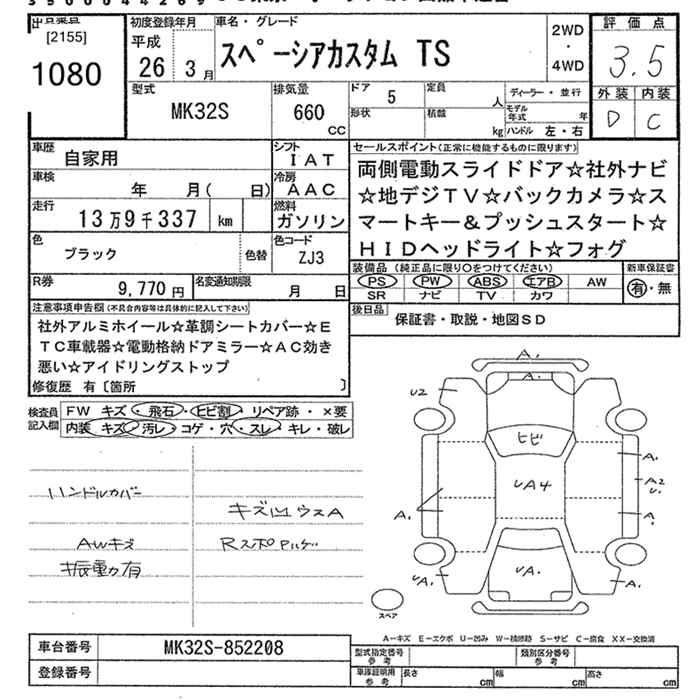 [2155]
1080
初度登録年月
平成
26 3月
車名・グレード
スペーシアカスタム TS
2WD
・
4WD
評価点
3.5
外装 内装
D C
型式
MK32S
排気量
660
CC
ドア 5
定員
人
形状
積載
kg
ディーラー・並行
モデル年式 年
ハンドル 左・右
車歴
自家用
シフト
IAT
車検
年 月( 日)
冷房
AAC
走行
13万9千337 km
燃料
ガソリン
色
ブラック
色替
色コード
ZJ3
R券
9,770円
名変通知期限
月 日
セールスポイント(正常に機能するものに限ります)
両側電動スライドドア☆社外ナビ
☆地デジTV☆バックカメラ☆ス
マートキー&プッシュスタート☆
HIDヘッドライト☆フォグ
装備品 (純正品に限り○をつけてください)
PS PW ABS エアB AW
SR ナビ TV カワ
新車保証書
有・無
後日品
保証書・取説・地図SD
注意事項申告欄(不具合内容等は具体的に記入して下さい)
社外アルミホイール☆革調シートカバー☆E
TC車載器☆電動格納ドアミラー☆AC効き
悪い☆アイドリングストップ
修復歴 有〔箇所 〕
検査員
記入欄
FW キズ・飛石・ヒビ割・リペア跡・×要
内装 キズ・汚レ・コゲ・穴・スレ・キレ・破レ
ハンドルカバー
AWキズ
振動有
キズ凹ウスA
A.
A.
U2
ヒビ
A.
A2
U.
UA4
A.
A.
UA.
UA.
A.
スペア
A−キズ E−エクボ U−凹み W−補修跡 S−サビ C−腐食 XX−交換済
車台番号
MK32S-852208
登録番号
型式指定番号
参考
類別区分番号
参考
車庫証明用
参考
長さ cm
幅 cm
高さ cm